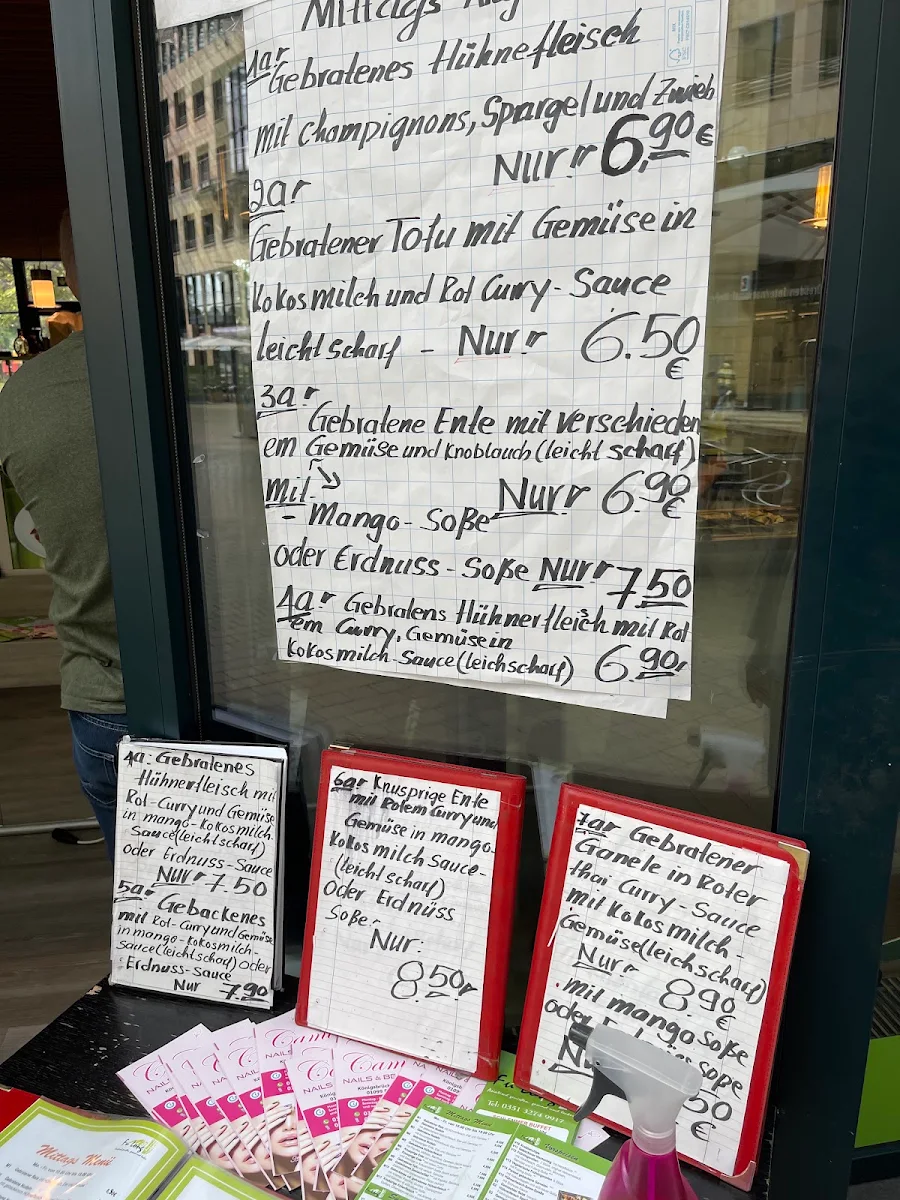 Mittags
1a: Gebratenes Hühnefleisch
mit Champignons, Spargel und Zwieb
Nur: 6,90 €
2a:
Gebratener Tofu mit Gemüse in
Kokosmilch und Rot Curry-Sauce
leicht scharf - Nur: 6.50 €
3a:
Gebratene Ente mit verschieden
em Gemüse und Knoblauch (leicht scharf)
mit Nur: 6,90 €
- Mango-Soße
oder Erdnuss-Soße Nur: 7,50
4a: Gebratens Hühnerfleisch mit Rot
em Curry, Gemüse in
Kokosmilch-Sauce (leichscharf) 6,90,
4a: Gebratenes
Hühnerfleisch mit
Rot-Curry und Gemüse
in mango-Kokosmilch
Sauce (leicht scharf)
oder Erdnuss-Sauce
Nur 7.50
5a: Gebackenes
mit Rot-Curry und Gemüse
in mango-Kokosmilch-
Sauce (leicht scharf) oder
Erdnuss-Sauce
Nur 7,90
6a: Knusprige Ente
mit Rotem Curry und
Gemüse in mango-
Kokosmilch Sauce-
(leicht scharf)
oder Erdnüss
Soße-
Nur:
8,50,
7a: Gebratener
Ganele in Roter
thai Curry-Sauce
mit Kokosmilch-
Gemüse (leichscharf)
Nur: 8,90 €
. mit mango Soße
oder
50 €
NAILS
NAILS & BE
Königsbrück
01099
Tel: 0351 3224 9917
BUFFET
Mittags Menü